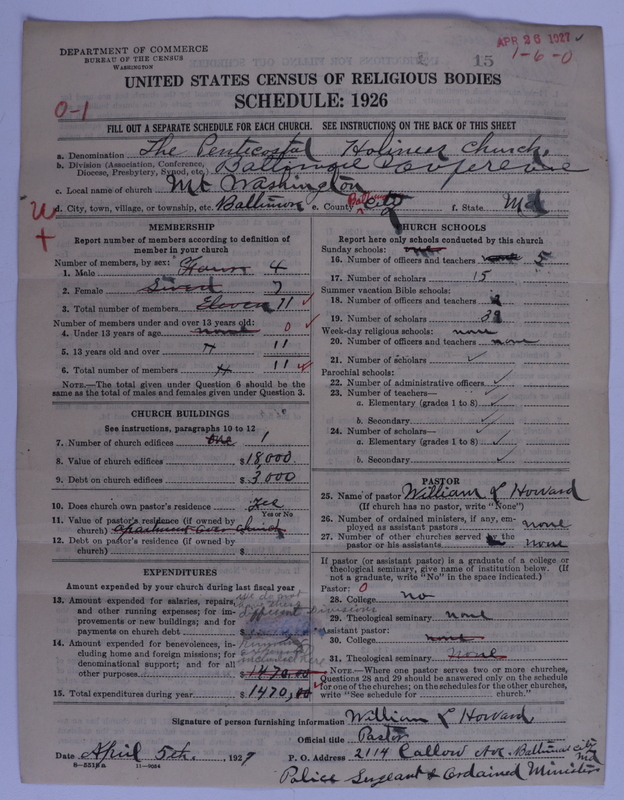 APR 26 1927
1-6-0
15
DEPARTMENT OF COMMERCE
BUREAU OF THE CENSUS
WASHINGTON
UNITED STATES CENSUS OF RELIGIOUS BODIES
SCHEDULE: 1926
0-1
FILL OUT A SEPARATE SCHEDULE FOR EACH CHURCH. SEE INSTRUCTIONS ON THE BACK OF THIS SHEET
a. Denomination The Penticostal Holiness Church.
b. Division (Association, Conference, Diocese, Presbytery, Synod, etc.) Baltimore Conference
c. Local name of church Mt Washington
d. City, town, village, or township, etc. Baltimore e. County Baltimore City f. State Md
MEMBERSHIP
Report number of members according to definition of
member in your church
Number of members, by sex:
1. Male Four 4
2. Female Seven 7
3. Total number of members Eleven 11
Number of members under and over 13 years old:
4. Under 13 years of age none 0
5. 13 years old and over 11
6. Total number of members 11
NOTE.—The total given under Question 6 should be the
same as the total of males and females given under Question 3.
CHURCH BUILDINGS
See instructions, paragraphs 10 to 12
7. Number of church edifices One 1
8. Value of church edifices $18,000
9. Debt on church edifices $3,000
10. Does church own pastor's residence? yes
Yes or No
11. Value of pastor's residence (if owned by
church) apartment over church
12. Debt on pastor's residence (if owned by
church) $
EXPENDITURES
Amount expended by your church during last fiscal year
13. Amount expended for salaries, repairs,
and other running expenses; for im-
provements or new buildings; and for
payments on church debt $
14. Amount expended for benevolences, in-
cluding home and foreign missions; for
denominational support; and for all
other purposes $1470.00
15. Total expenditures during year $1470,00
CHURCH SCHOOLS
Report here only schools conducted by this church
Sunday schools: one
16. Number of officers and teachers 5
17. Number of scholars 15
Summer vacation Bible schools:
18. Number of officers and teachers
19. Number of scholars
Week-day religious schools: none
20. Number of officers and teachers none
21. Number of scholars
Parochial schools:
22. Number of administrative officers
23. Number of teachers—
a. Elementary (grades 1 to 8)
b. Secondary
24. Number of scholars—
a. Elementary (grades 1 to 8)
b. Secondary
PASTOR
25. Name of pastor William L Howard
(If church has no pastor, write "None")
26. Number of ordained ministers, if any, em-
ployed as assistant pastors none
27. Number of other churches served by the
pastor or his assistants none
If pastor (or assistant pastor) is a graduate of a college or
theological seminary, give name of institution below. (If
not a graduate, write "No" in the space indicated.)
Pastor: 0
28. College no
29. Theological seminary none
Assistant pastor:
30. College none
31. Theological seminary none
NOTE.—Where one pastor serves two or more churches,
Questions 28 and 29 should be answered only on the schedule
for one of the churches; on the schedules for the other churches,
write "See schedule for church."
Signature of person furnishing information William L Howard
Official title Pastor
Date April 5th, 1927 P. O. Address 2114 Callow Ave, Baltimore city Md
8-5518a 11-9024
Police Sergeant & Ordained Minister